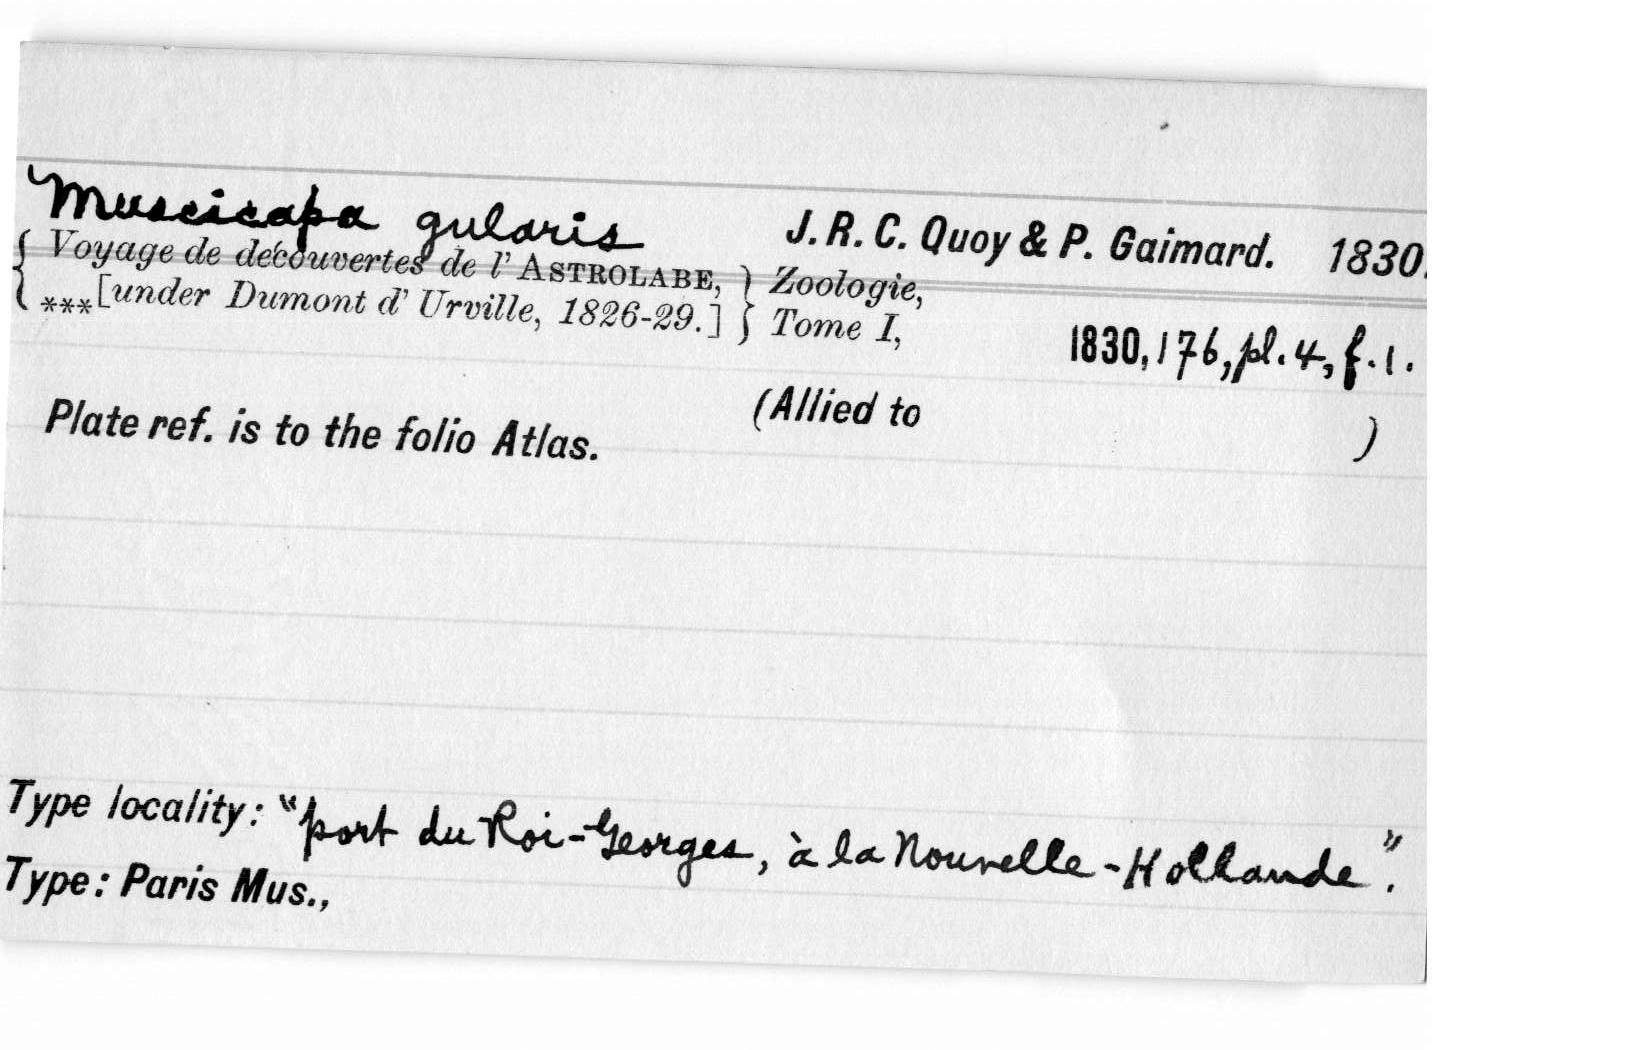 Muscicapa gularis J. R. C. Quoy & P. Gaimard. 1830.
{ Voyage de découvertes de l' ASTROLABE, } Zoologie,
{ ***[under Dumont d' Urville, 1826-29.] } Tome I, 1830, 176, pl. 4, f. 1.
Plate ref. is to the folio Atlas. (Allied to )
Type locality: "port du Roi-Georges, à la Nouvelle-Hollande".
Type: Paris Mus.,